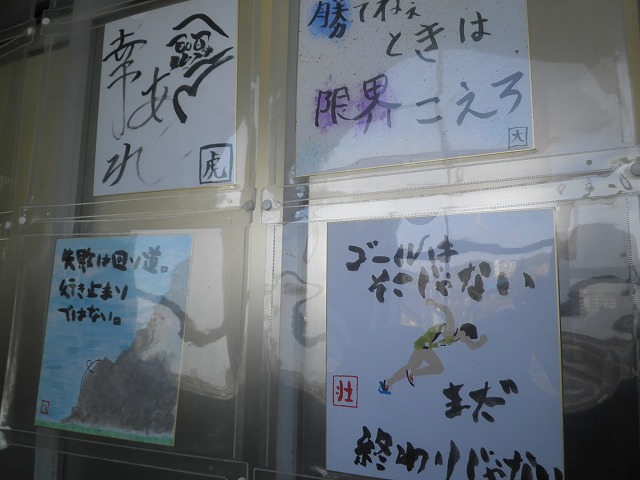 幸
あ
れ
虎
勝てねぇ
ときは
限界こえろ
大
失敗は回り道。
行き止まり
ではない。
ゴールは
そこじゃない
まだ
終わりじゃない
壮